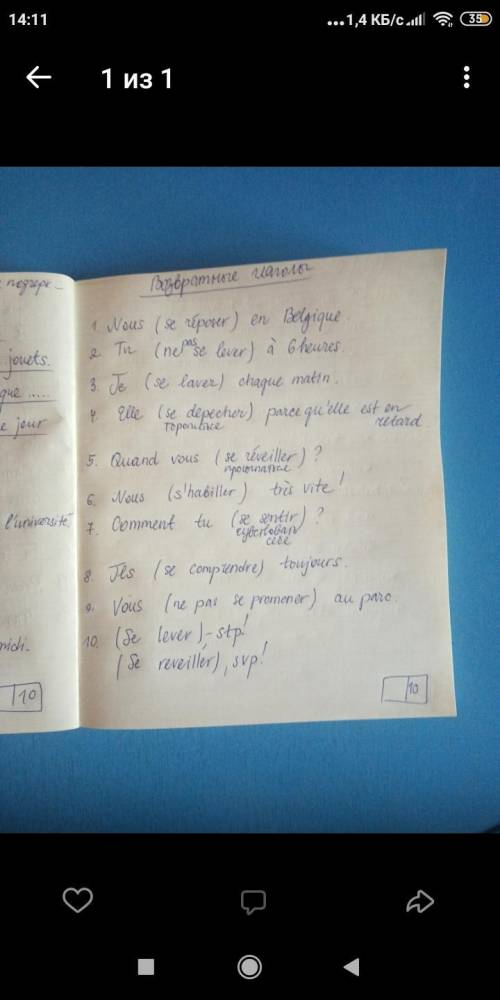 14:11
...1,4 КБ/с
35
1 из 1
Возвратные глаголы
1. Nous (se réposer) en Belgique.
2. Tu (ne pas se lever) à 6 heures.
3. Je (se laver) chaque matin.
4. Elle (se depecher) parce qu'elle est en retard
торопиться
5. Quand vous (se réveiller) ?
просыпаться
6. Nous (s'habiller) très vite!
7. Comment tu (se sentir) ?
себя
8. Ils (se comprendre) toujours.
9. Vous (ne pas se promener) au parc.
10. (Se lever) - stp!
(Se reveiller), svp!
10
jouets.
que .....
e jour
l'université.
midi.
10